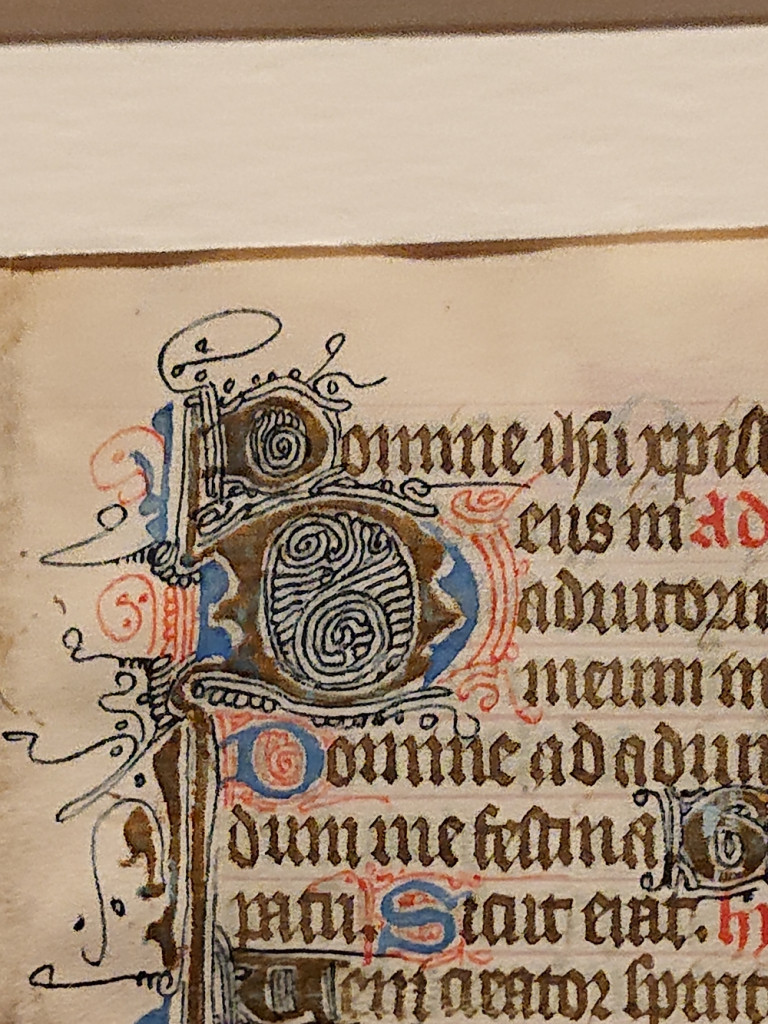 Domine ihū xpist
Deus in Ad
adiutoriu
meum in
Domine ad adiuu
dum me festina G
patri. Sicut erat. hy
Veni creator spirit